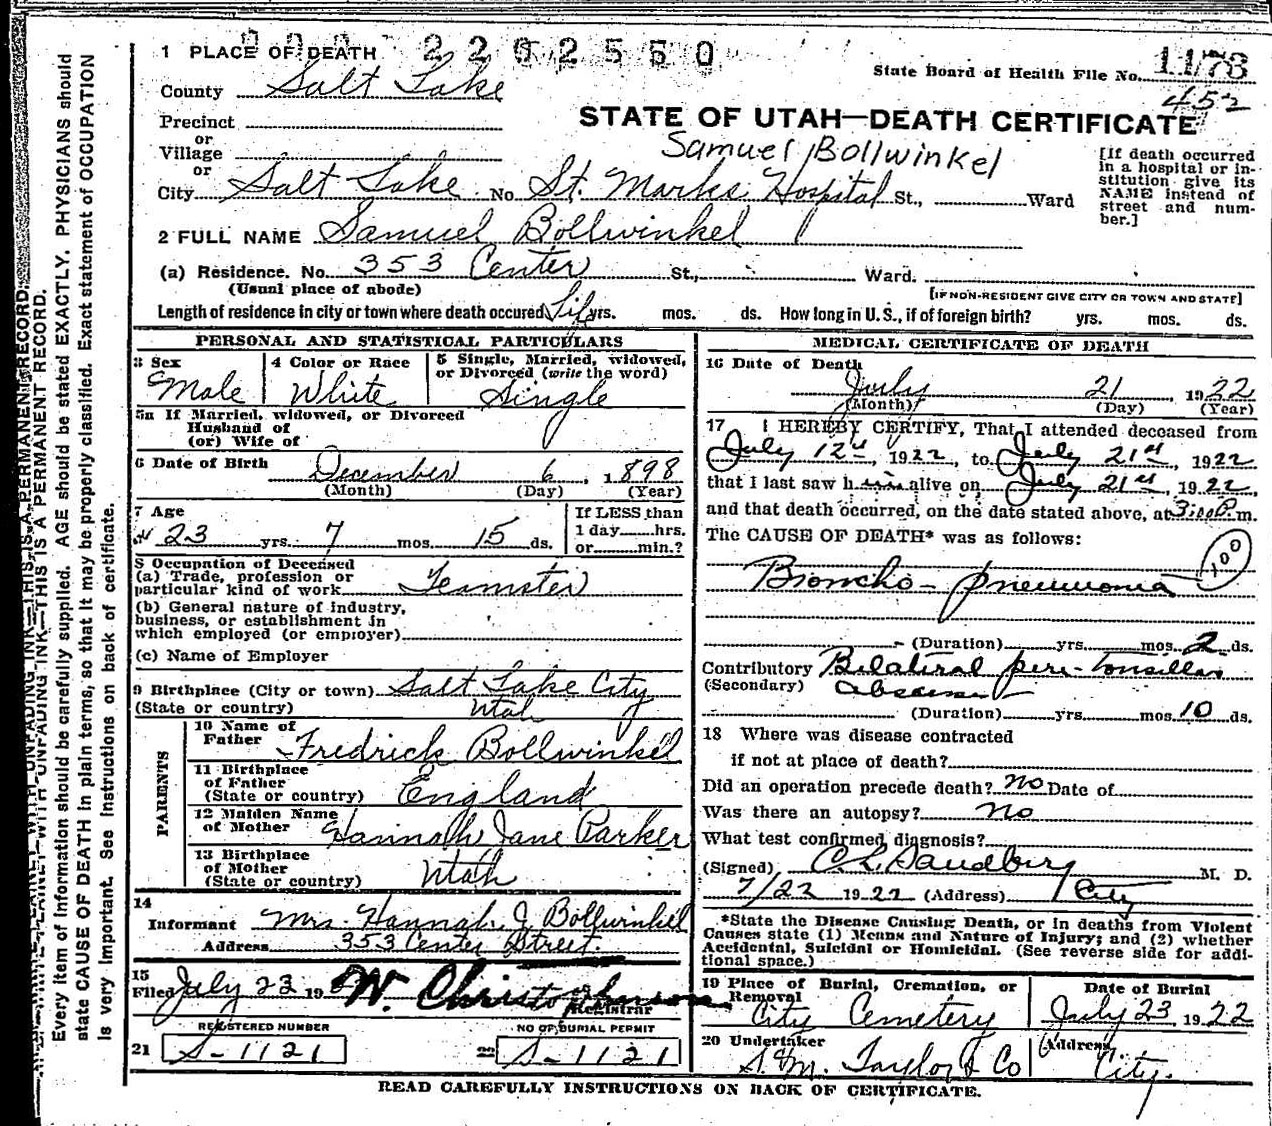 2292550
1 PLACE OF DEATH
State Board of Health File No. 1176
452
County Salt Lake
STATE OF UTAH—DEATH CERTIFICATE
Precinct
or
Village
or
Samuel Bollwinkel
City Salt Lake No. St. Marks Hospital St., Ward
[If death occurred in a hospital or institution give its NAME instead of street and number.]
2 FULL NAME Samuel Bollwinkel
(a) Residence. No. 353 Center St., Ward.
(Usual place of abode)
[IF NON-RESIDENT GIVE CITY OR TOWN AND STATE]
Length of residence in city or town where death occured Life yrs. mos. ds. How long in U. S., if of foreign birth? yrs. mos. ds.
PERSONAL AND STATISTICAL PARTICULARS
3 Sex Male
4 Color or Race White
5 Single, Married, widowed, or Divorced (write the word) Single
5a If Married, widowed, or Divorced
Husband of
(or) Wife of
6 Date of Birth December 6, 1898
(Month) (Day) (Year)
7 Age 23 yrs. 7 mos. 15 ds.
If LESS than
1 day hrs.
or min.?
8 Occupation of Deceased
(a) Trade, profession or
particular kind of work Teamster
(b) General nature of industry,
business, or establishment in
which employed (or employer)
(c) Name of Employer
9 Birthplace (City or town) Salt Lake City
(State or country) Utah
PARENTS
10 Name of
Father Fredrick Bollwinkel
11 Birthplace
of Father
(State or country) England
12 Maiden Name
of Mother Hannah Jane Parker
13 Birthplace
of Mother
(State or country) Utah
14
Informant Mrs. Hannah J Bollwinkel
Address 353 Center Street.
15
Filed July 23 19 W. Christopherson
Registrar
REGISTERED NUMBER
21 S-1121
NO OF BURIAL PERMIT
22 S-1121
MEDICAL CERTIFICATE OF DEATH
16 Date of Death
July 21 1922
(Month) (Day) (Year)
17 I HEREBY CERTIFY, That I attended deceased from
July 12th, 1922, to July 21st, 1922
that I last saw him alive on July 21st, 1922,
and that death occurred, on the date stated above, at 3:00 P. m.
The CAUSE OF DEATH* was as follows:
100
Broncho-pneumonia
(Duration) yrs. mos. 2 ds.
Contributory Bilateral peri-tonsillar
(Secondary) abscess
(Duration) yrs. mos. 10 ds.
18 Where was disease contracted
if not at place of death?
Did an operation precede death? no Date of
Was there an autopsy? no
What test confirmed diagnosis?
(Signed) C. L. Sandberg M. D.
7/22 1922 (Address) City
*State the Disease Causing Death, or in deaths from Violent
Causes state (1) Means and Nature of Injury; and (2) whether
Accidental, Suicidal or Homicidal. (See reverse side for addi-
tional space.)
19 Place of Burial, Cremation, or
Removal
City Cemetery
Date of Burial
July 23 1922
20 Undertaker
S. M. Taylor & Co
Address
City.
READ CAREFULLY INSTRUCTIONS ON BACK OF CERTIFICATE.
THIS IS A PERMANENT RECORD.
Every item of information should be carefully supplied. AGE should be stated EXACTLY. PHYSICIANS should
state CAUSE OF DEATH in plain terms, so that it may be properly classified. Exact statement of OCCUPATION
is very important. See instructions on back of certificate.